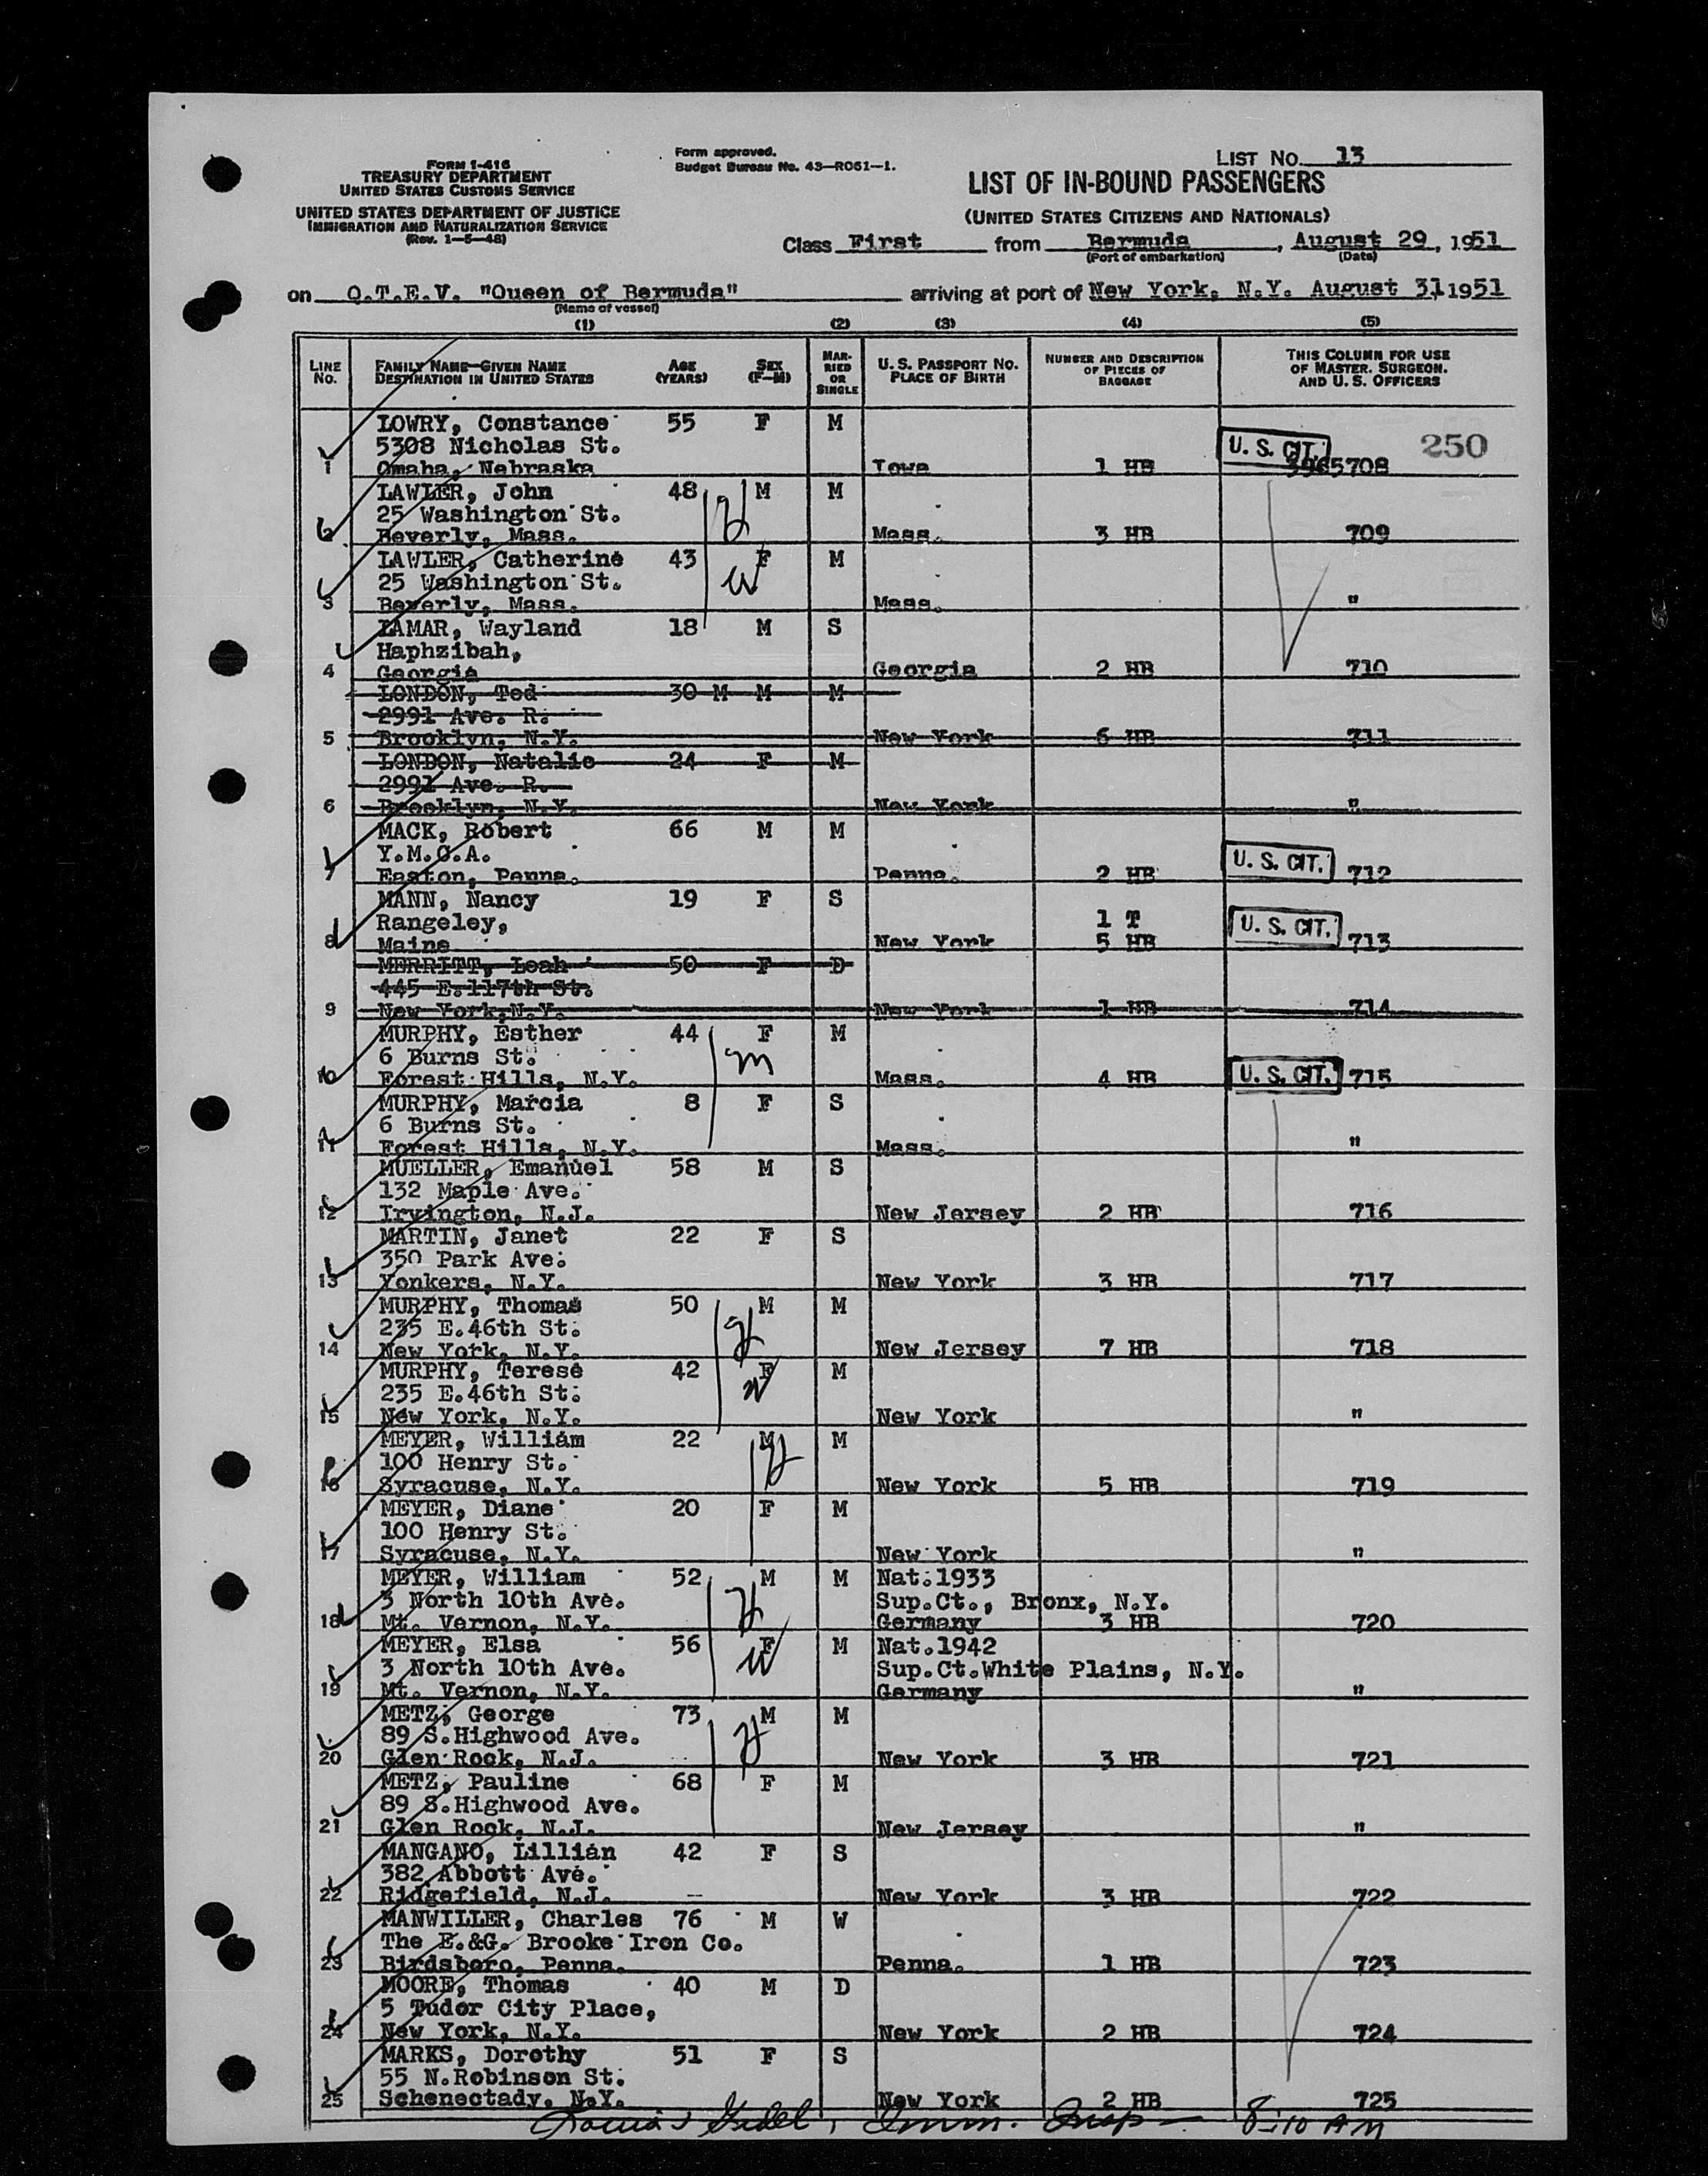 FORM I-416
TREASURY DEPARTMENT
UNITED STATES CUSTOMS SERVICE
UNITED STATES DEPARTMENT OF JUSTICE
IMMIGRATION AND NATURALIZATION SERVICE
(Rev. 1-5-48)
Form approved.
Budget Bureau No. 43-R061-1.
LIST No. 13
LIST OF IN-BOUND PASSENGERS
(UNITED STATES CITIZENS AND NATIONALS)
Class First from Bermuda, August 29, 1951
(Port of embarkation) (Date)
on Q.T.E.V. "Queen of Bermuda" arriving at port of New York, N.Y. August 31 1951
(Name of vessel)
(1) (2) (3) (4) (5)
LINE No. FAMILY NAME—GIVEN NAME DESTINATION IN UNITED STATES AGE (YEARS) SEX (F-M) MARRIED OR SINGLE U. S. PASSPORT NO. PLACE OF BIRTH NUMBER AND DESCRIPTION OF PIECES OF BAGGAGE THIS COLUMN FOR USE OF MASTER, SURGEON, AND U. S. OFFICERS
LOWRY, Constance 55 F M
5308 Nicholas St. U. S. CIT. 250
1 Omaha, Nebraska Iowa 1 HB 3965708
LAWLER, John 48 M M
25 Washington St.
2 Beverly, Mass. Mass. 3 HB 709
LAWLER, Catherine 43 F M
W
25 Washington St.
3 Beverly, Mass. Mass. "
LAMAR, Wayland 18 M S
Haphzibah,
4 Georgia Georgia 2 HB 710
LONDON, Ted 30 M M M
2991 Ave. R.
5 Brooklyn, N.Y. New York 6 HB 711
LONDON, Natalie 24 F M
2991 Ave. R.
6 Brooklyn, N.Y. New York "
MACK, Robert 66 M M
Y.M.C.A. U. S. CIT.
7 Easton, Penna. Penna. 2 HB 712
MANN, Nancy 19 F S
Rangeley, 1 T U. S. CIT.
8 Maine New York 5 HB 713
MERRITT, Leah 50 F D
445 E.117th St.
9 New York,N.Y. New York 1 HB 714
MURPHY, Esther 44 F M
6 Burns St. m
10 Forest Hills, N.Y. Mass. 4 HB U. S. CIT. 715
MURPHY, Marcia 8 F S
6 Burns St.
11 Forest Hills, N.Y. Mass. "
MUELLER, Emanuel 58 M S
132 Maple Ave.
12 Irvington, N.J. New Jersey 2 HB 716
MARTIN, Janet 22 F S
350 Park Ave.
13 Yonkers, N.Y. New York 3 HB 717
MURPHY, Thomas 50 M M
235 E.46th St.
14 New York, N.Y. New Jersey 7 HB 718
MURPHY, Terese 42 F M
W
235 E.46th St.
15 New York, N.Y. New York "
MEYER, William 22 M M
100 Henry St.
16 Syracuse, N.Y. New York 5 HB 719
MEYER, Diane 20 F M
100 Henry St.
17 Syracuse, N.Y. New York "
MEYER, William 52 M M Nat.1933
3 North 10th Ave. Sup.Ct., Bronx, N.Y.
18 Mt. Vernon, N.Y. Germany 3 HB 720
MEYER, Elsa 56 F M Nat.1942
W
3 North 10th Ave. Sup.Ct.White Plains, N.Y.
19 Mt. Vernon, N.Y. Germany "
METZ, George 73 M M
89 S.Highwood Ave.
20 Glen Rock, N.J. New York 3 HB 721
METZ, Pauline 68 F M
89 S.Highwood Ave.
21 Glen Rock, N.J. New Jersey "
MANGANO, Lillian 42 F S
382 Abbott Ave.
22 Ridgefield, N.J. New York 3 HB 722
MANWILLER, Charles 76 M W
The E.&G. Brooke Iron Co.
23 Birdsboro, Penna. Penna. 1 HB 723
MOORE, Thomas 40 M D
5 Tudor City Place,
24 New York, N.Y. New York 2 HB 724
MARKS, Dorothy 51 F S
55 N.Robinson St.
25 Schenectady, N.Y. New York 2 HB 725
Imm. Insp 8:10 AM